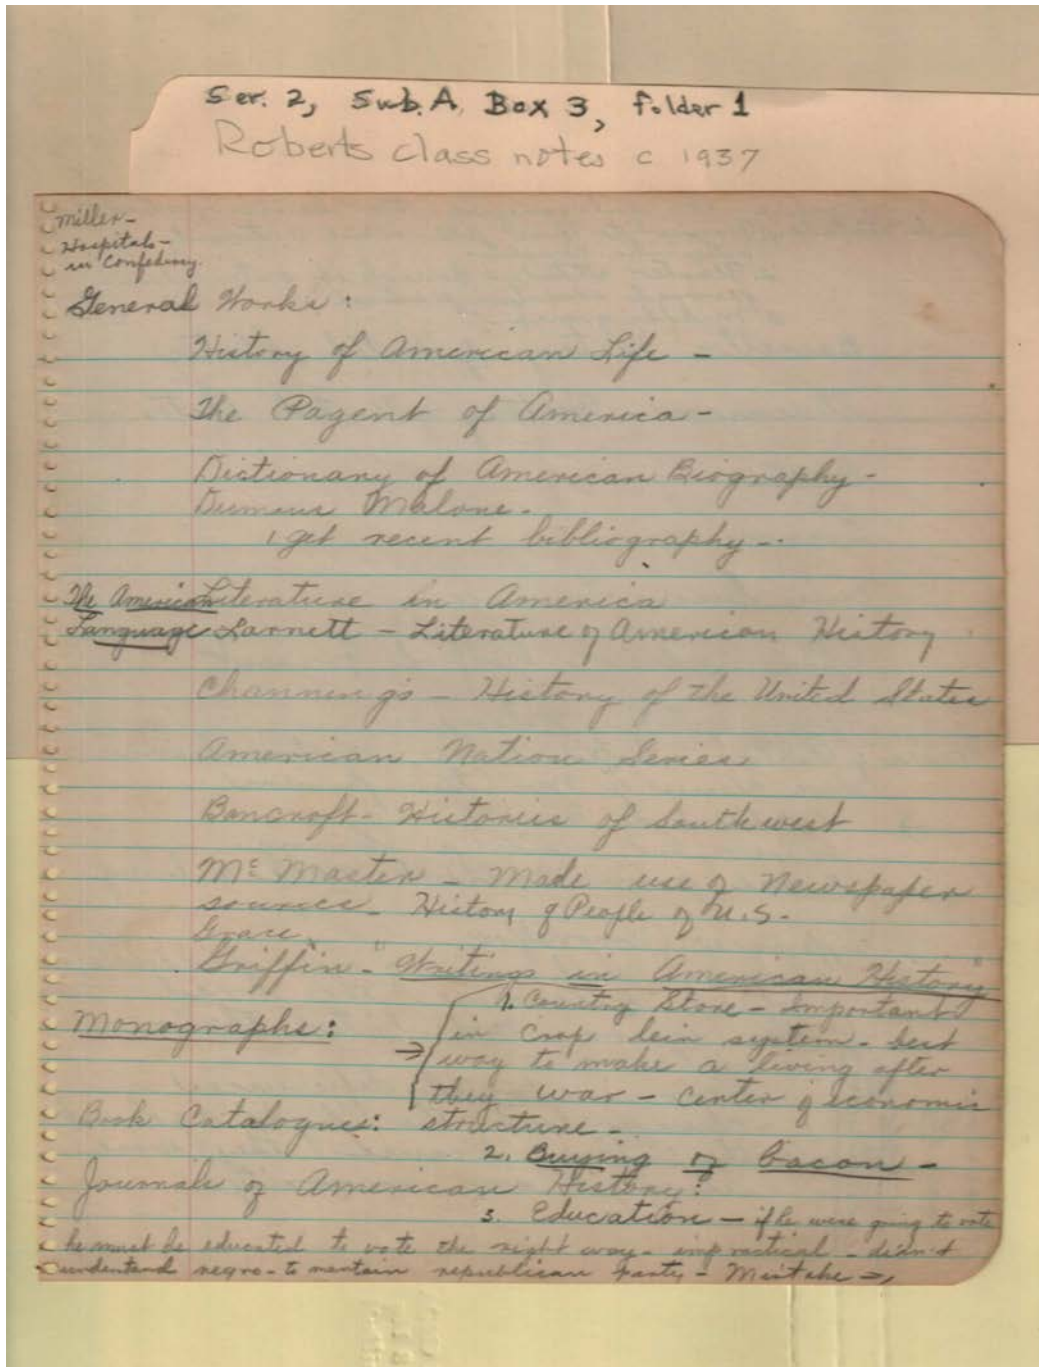 Ser. 2, Sub. A, Box 3, folder 1
Roberts class notes c 1937
Miller -
Hospitals -
in Confedracy.
General Works:
History of American Life -
The Pagent of America -
Dictionary of American Biography -
Dumas Malone -
get recent bibliography -
The American Literature in America
Language Larnett - Literature of American History
Channing's - History of the United States
American Nation Series
Bancroft - Histories of Southwest
Mc Master - Made use of Newspaper
source - History of People of U.S. -
Grace
Griffin - "Writings in American History"
1. Country Store - Important
Monographs: in Crop lein system - best
way to make a living after
they war - Center of economic
Book Catalogues: structure -
2. Buying of bacon -
Journals of American History:
3. Education - if he were going to vote
he must be educated to vote the right way - impractical - didn't
understand negro - to mantain republican party - Mistake -